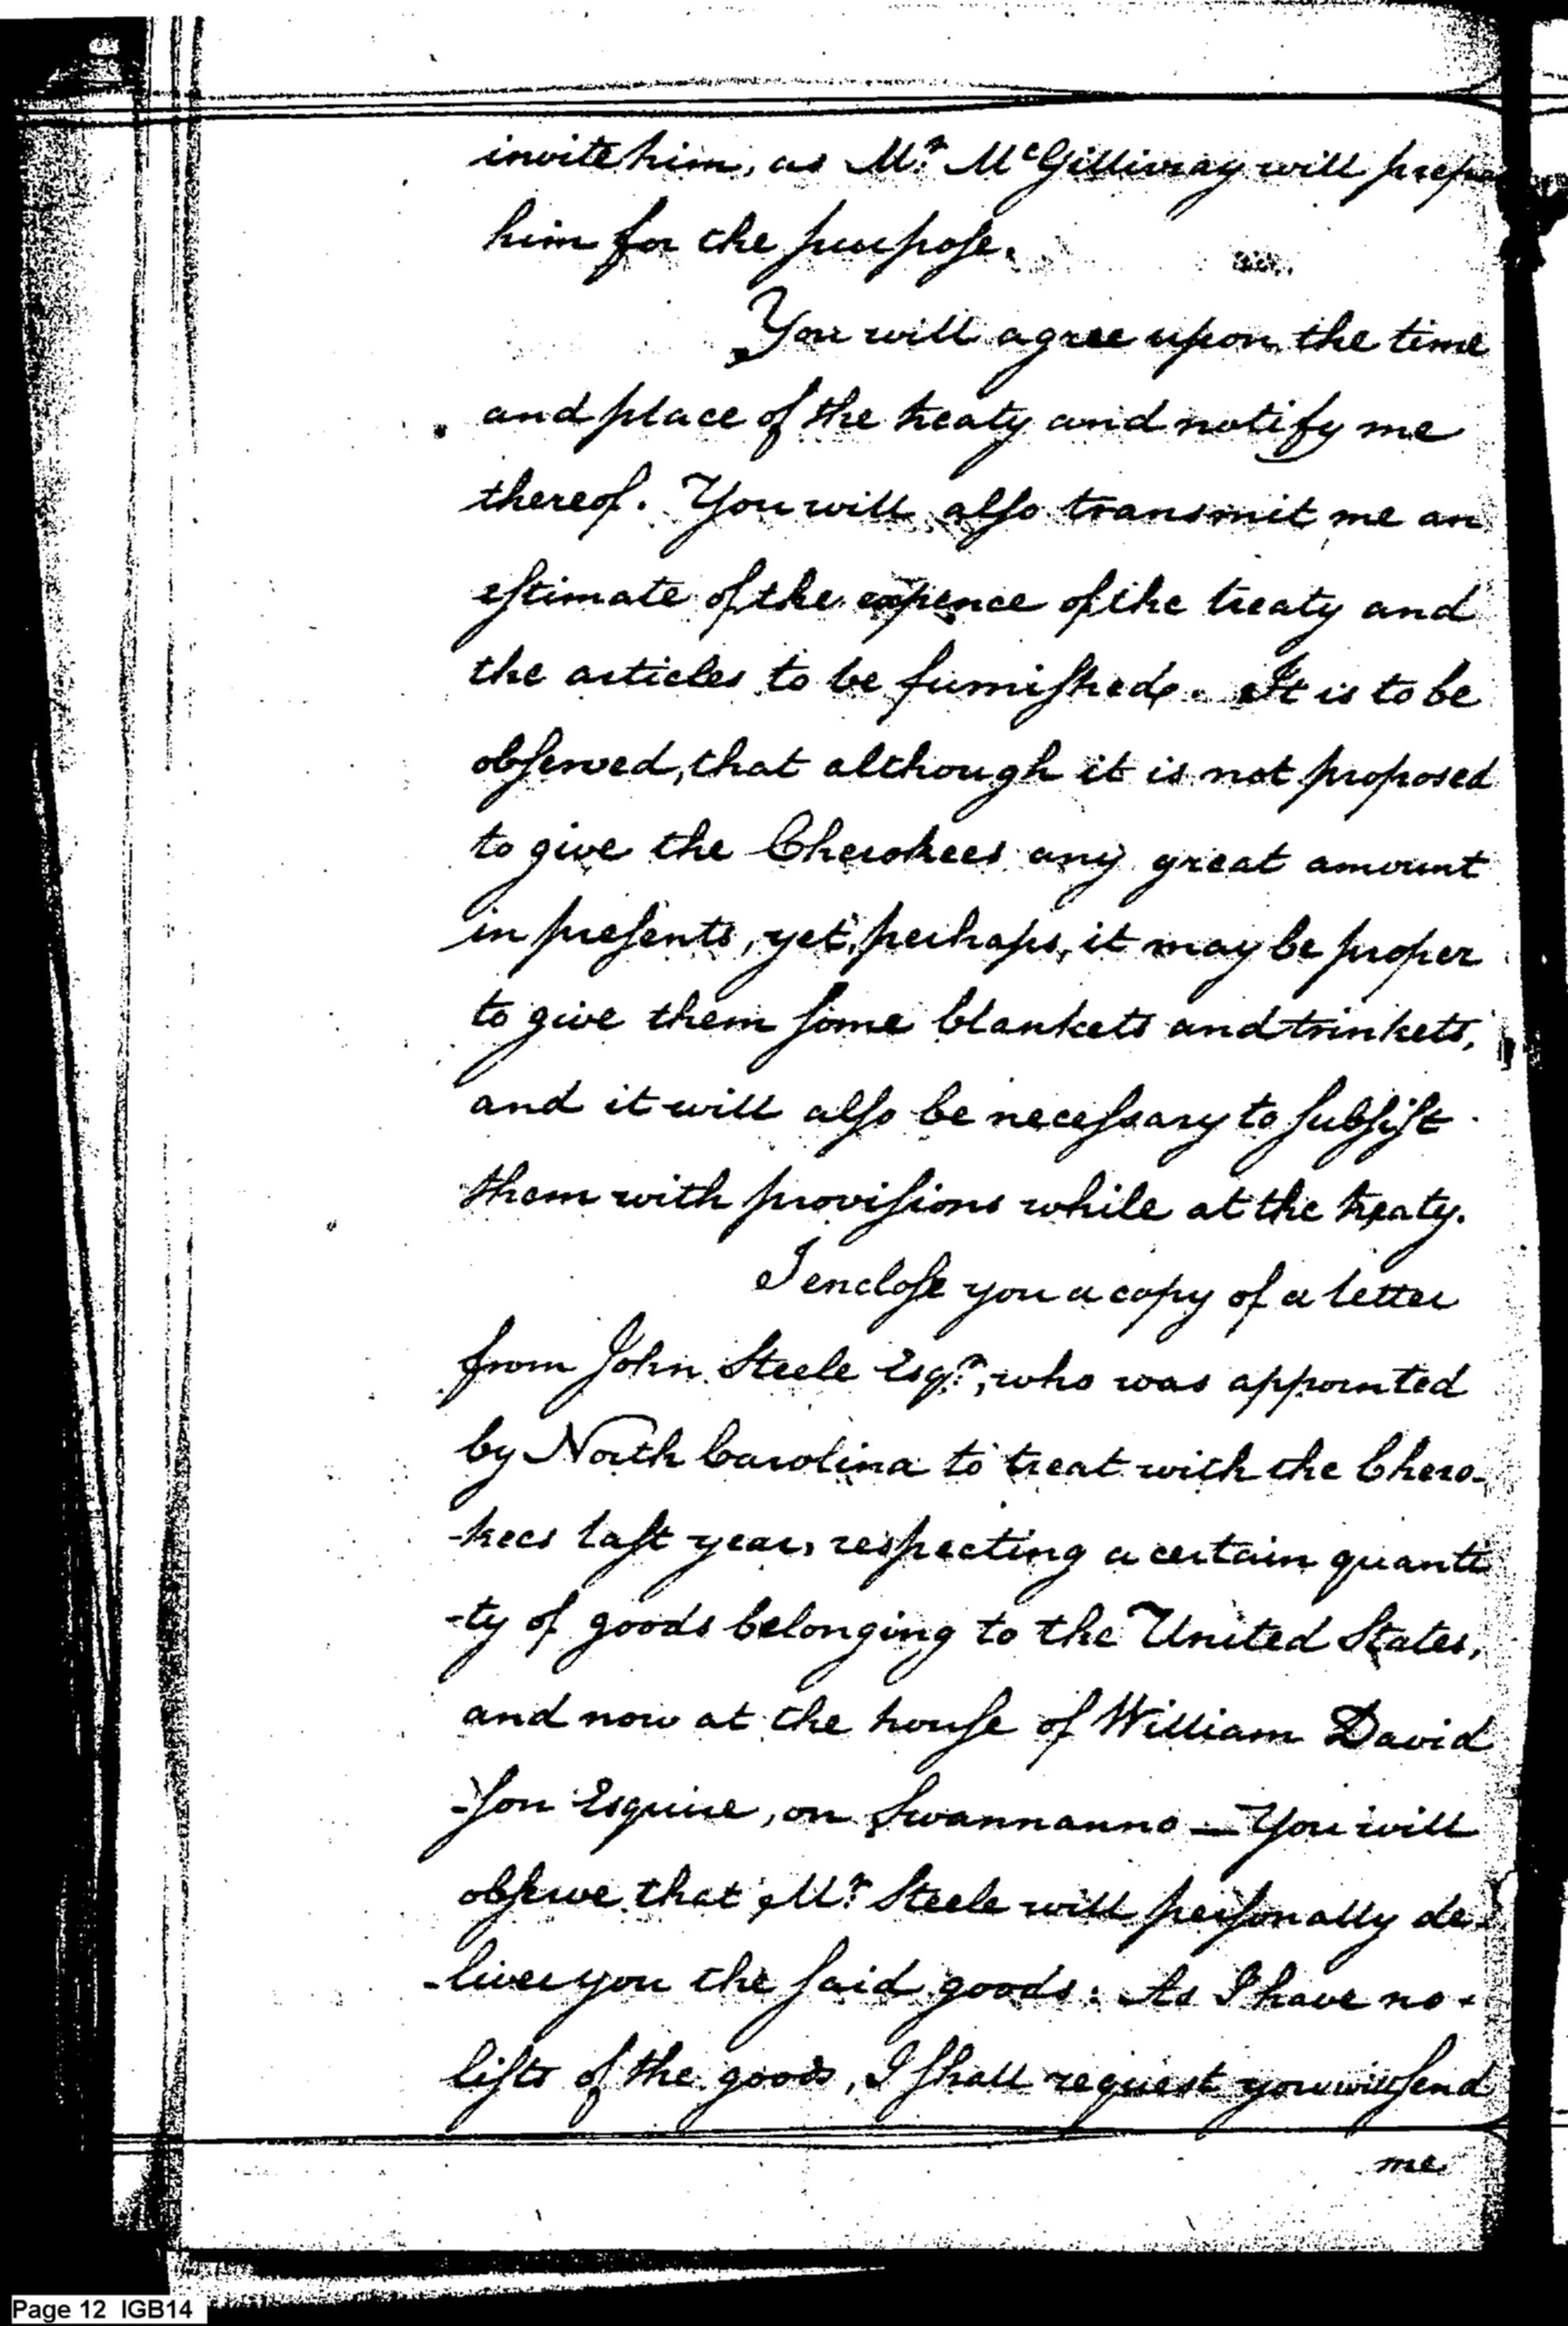 invite him, as Mr. McGillivray will prepa
him for the purpose.
You will agree upon the time
and place of the treaty and notify me
thereof. You will also transmit me an
estimate of the expence of the treaty and
the articles to be furnished. It is to be
observed, that although it is not proposed
to give the Cherokees any great amount
in presents, yet, perhaps, it may be proper
to give them some blankets and trinkets,
and it will also be necessary to subsist
them with provisions while at the treaty.
I enclose you a copy of a letter
from John Steele Esqr., who was appointed
by North Carolina to treat with the Chero-
-kees last year, respecting a certain quanti
-ty of goods belonging to the United States,
and now at the house of William David
-son Esquire, on Swannanno — You will
observe that Mr. Steele will personally de-
-liver you the said goods: As I have no
lists of the goods, I shall request you will send
me
Page 12 IGB14